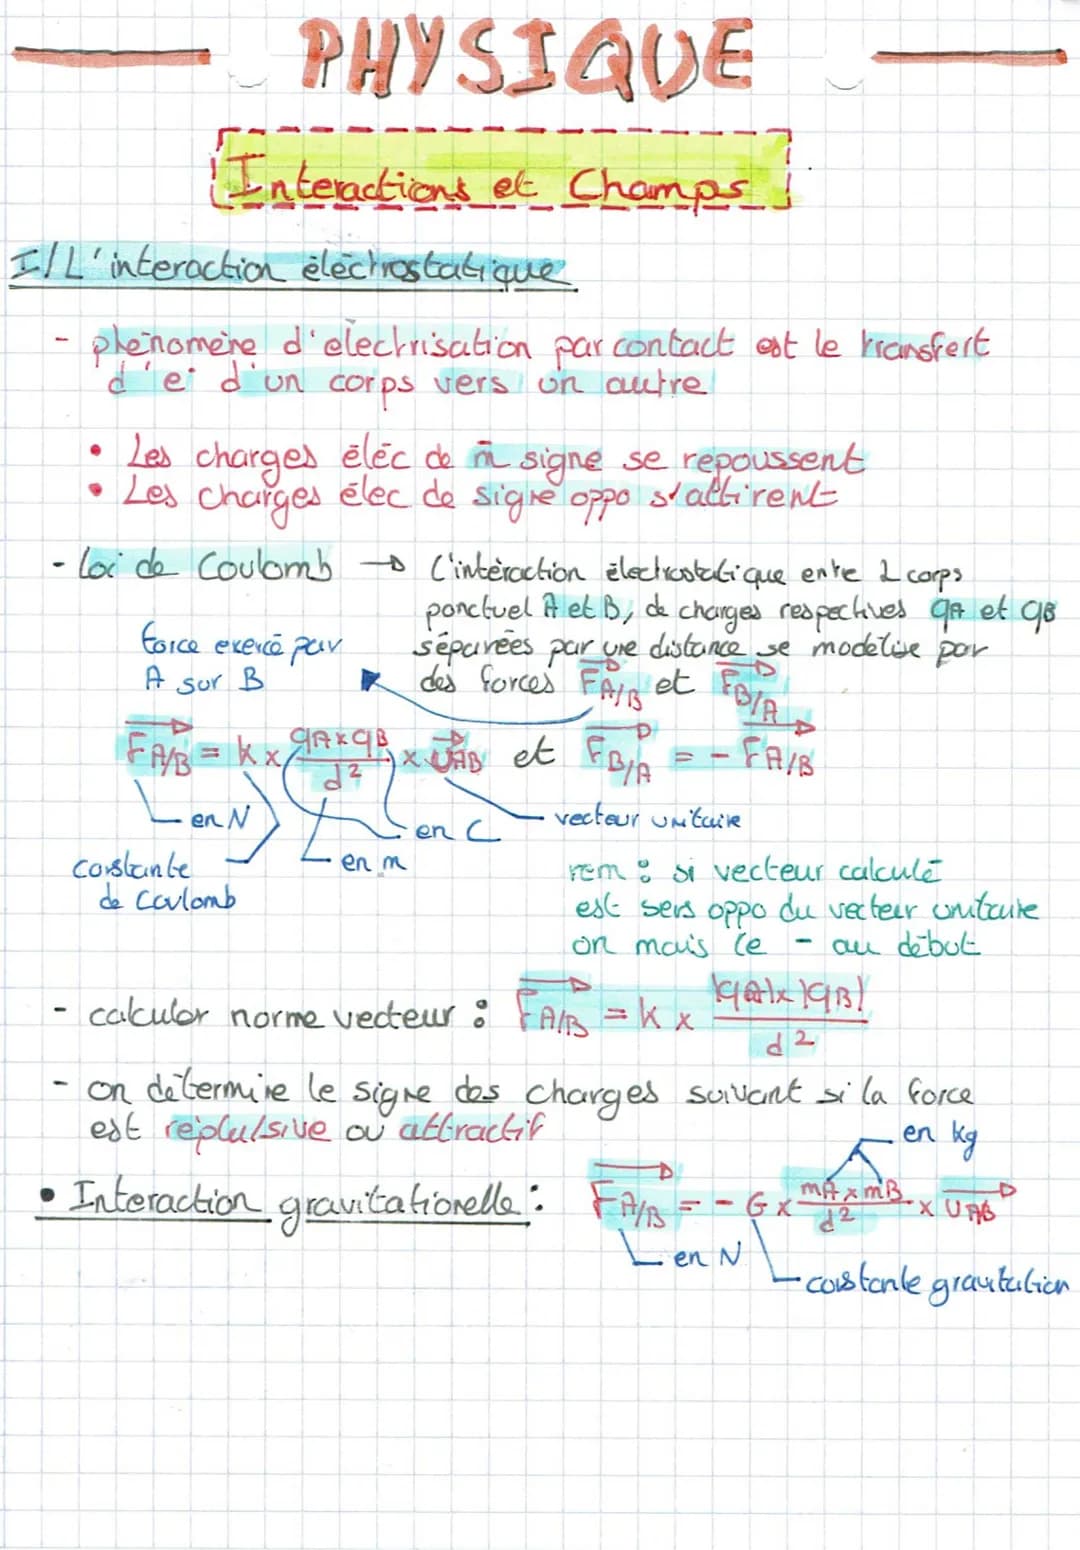 PHYSIQUE
Interactions et Champs
I/ L'interaction éléctrostatique
- phénomène d'électrisation par contact est le transfert
d'e- d'un corps vers un autre
• Les charges éléc de m̄ signe se repoussent
• Les charges élec de signe oppo s'attirent
- Loi de Coulomb → L'intéraction électrostatique entre 2 corps
ponctuel A et B, de charges respectives qA et qB
séparées par une distance se modélise par
des forces FA/B et FB/A
force exercé par
A sur B
FA/B = k × qA×qB / d² × UAB et FB/A = - FA/B
en N
en C
vecteur unitaire
constante
de Coulomb
en m
rem : si vecteur calculé
est sens oppo du vecteur unitaire
on mais le - au début
- calculer norme vecteur : FA/B = k × |qA|×|qB| / d²
- on détermine le signe des charges suivant si la force
est réplulsive ou attractif
en kg
• Interaction gravitationelle : FA/B = - G × mA×mB / d² × UAB
en N
constante gravitation